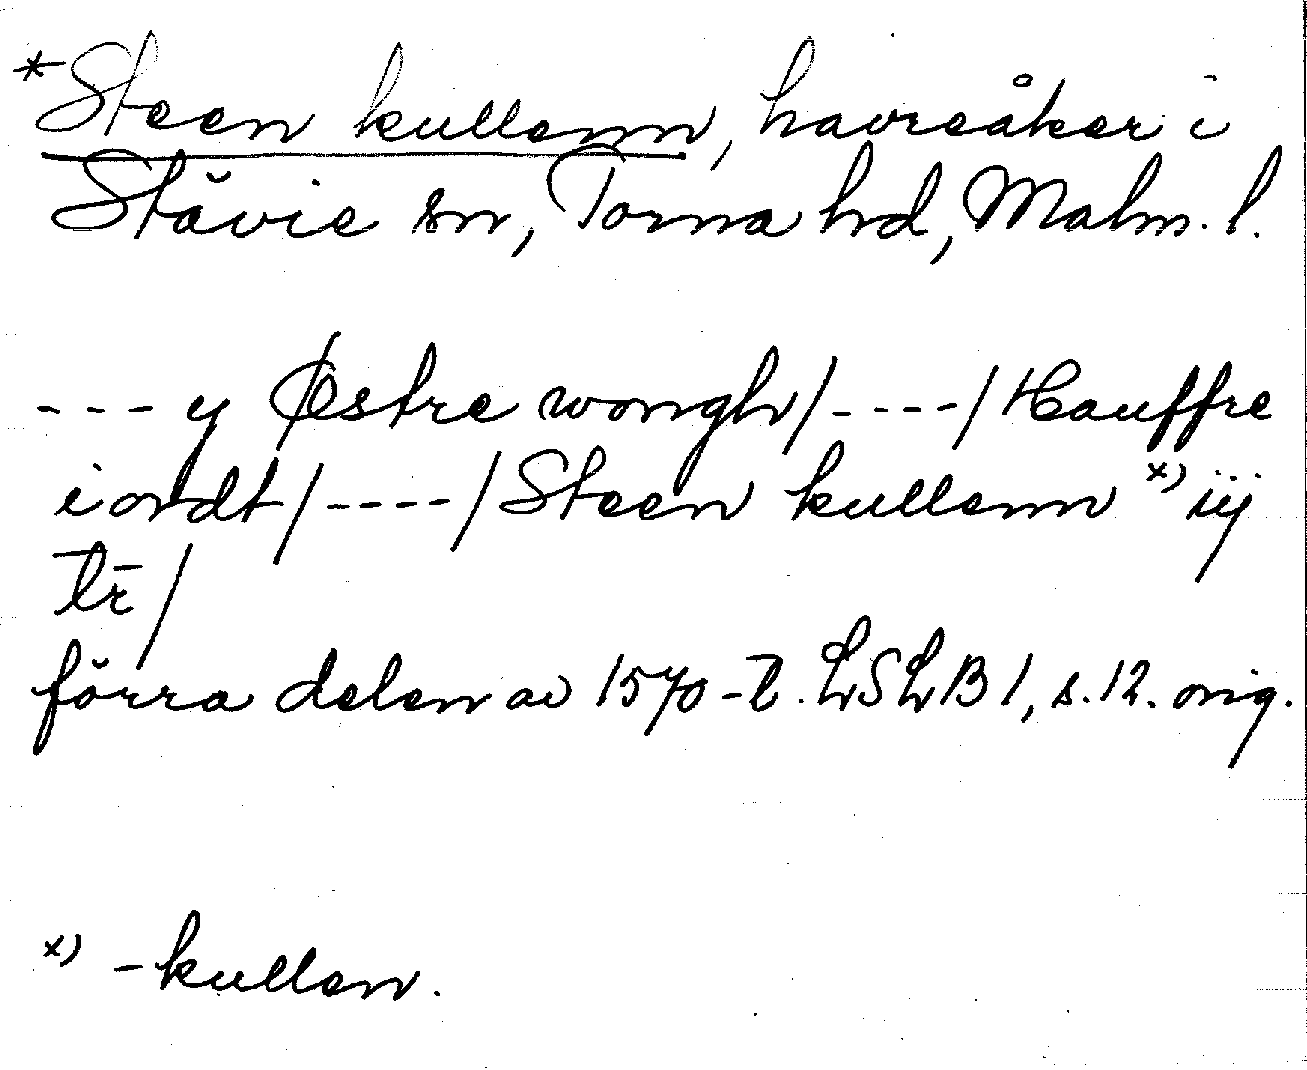 *Steen kullenn, havreåker i
Stävie sn, Torna hd, Malm. l.
---y Østre wongh/----/Hauffre
iordt/----/Steen kullenn x) iij
lr̄/
förra delen av 1570-t. LSLB 1, s. 12. orig.
x) -kullen.